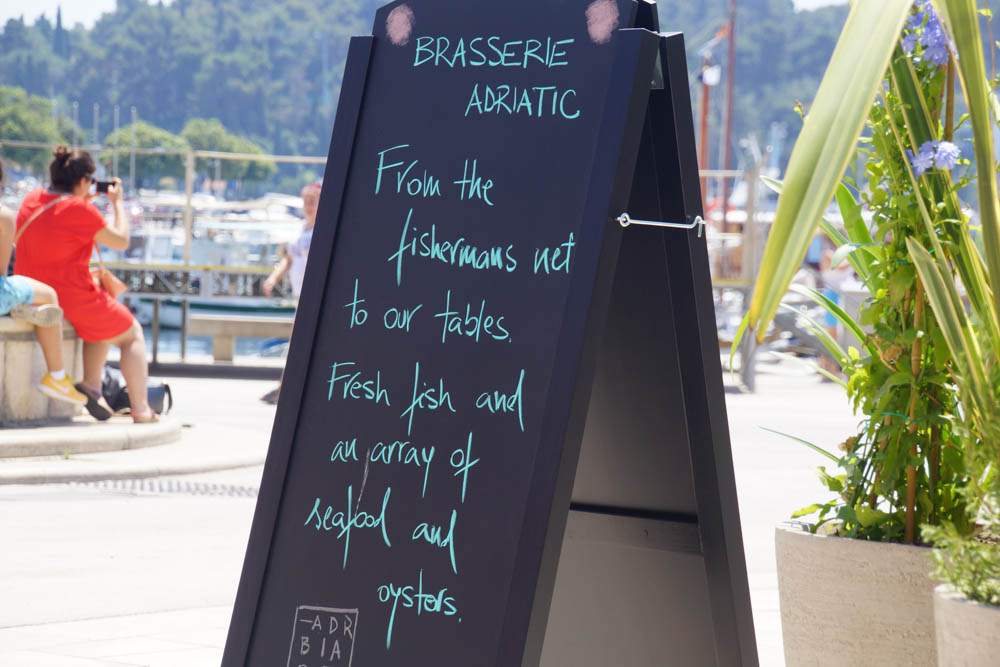 BRASSERIE
ADRIATIC
From the
fishermans net
to our tables.
Fresh fish and
an array of
seafood and
oysters.
-ADR
BIA